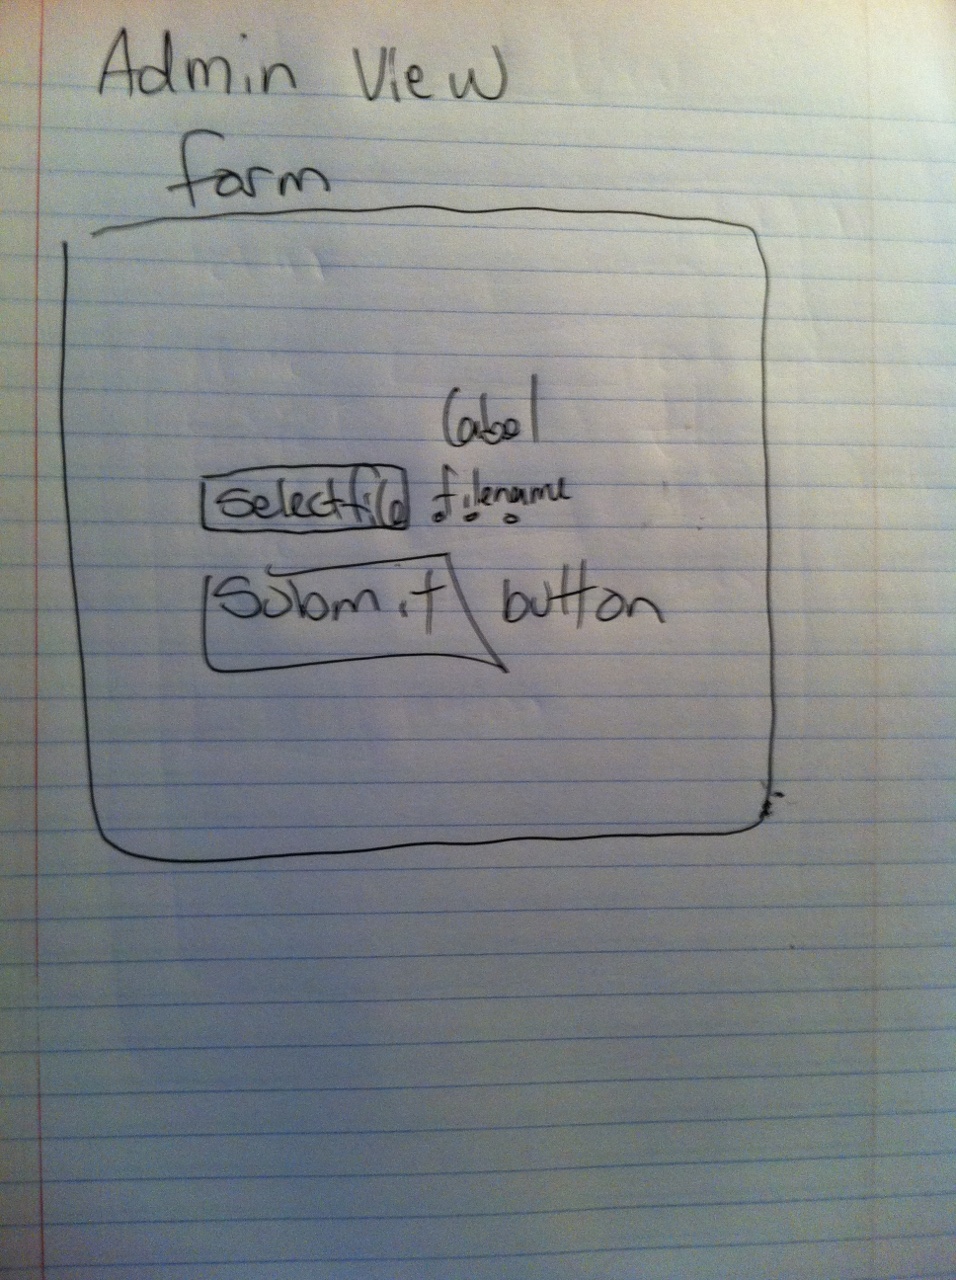 Admin View
form
label
Selectfile filename
Submit button